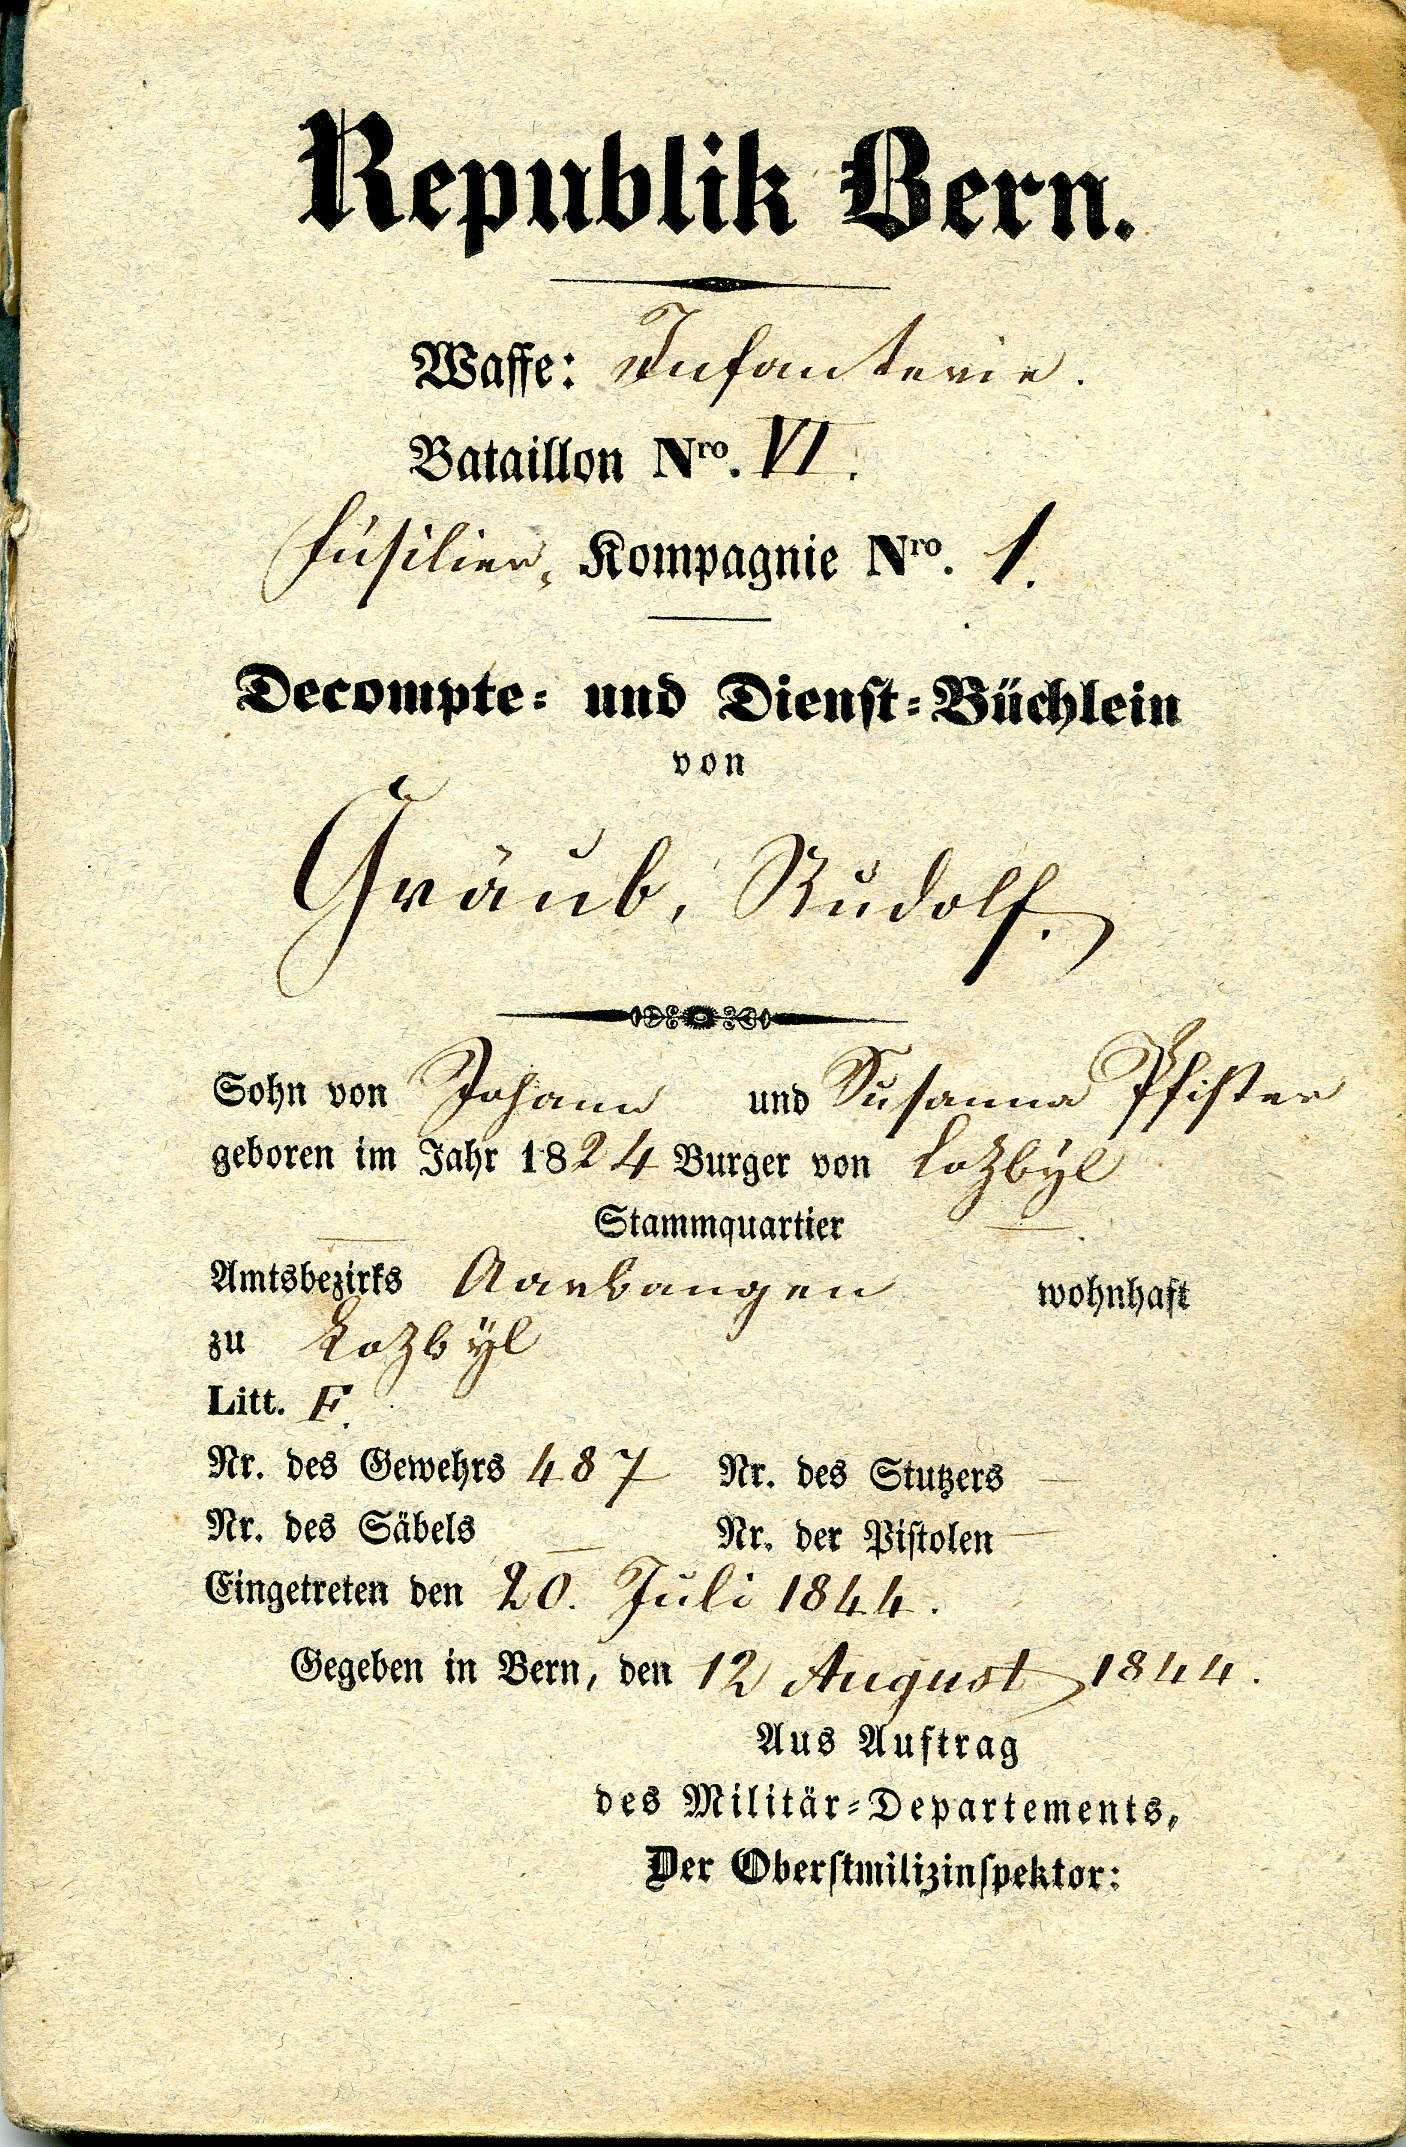 Republik Bern.
Waffe: Infanterie.
Bataillon Nro. VI.
Füsilier, Kompagnie Nro. 1.
Decompte- und Dienst-Büchlein
von
Gräub, Rudolf.
Sohn von Johann und Susanna Pfister
geboren im Jahr 1824 Burger von Lozbÿl
Stammquartier —
Amtsbezirks Aarwangen wohnhaft
zu Lozbÿl
Litt. F.
Nr. des Gewehrs 487 Nr. des Stutzers —
Nr. des Säbels — Nr. der Pistolen —
Eingetreten den 20. Juli 1844.
Gegeben in Bern, den 12 August 1844.
Aus Auftrag
des Militär-Departements,
Der Oberstmilizinspektor: